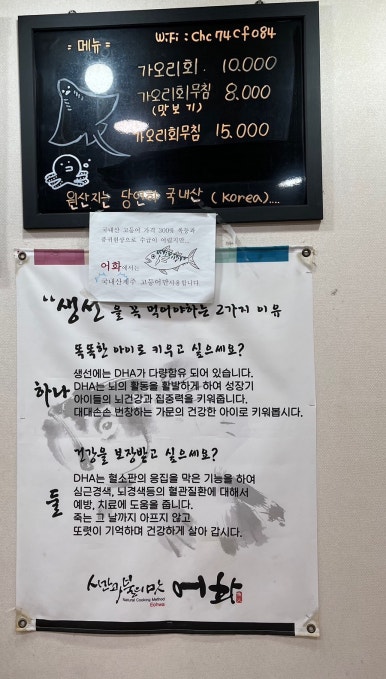 = 메뉴 =
WiFi : Chc74cf084
가오리회. 10,000
가오리회무침 8,000
(맛보기)
가오리회무침 15,000
원산지는 당연히 국내산 (Korea)....
국내산 고등어 가격 200% 폭등과
품귀현상으로 수급이 어렵지만..
어화에서는
국내산 제주 고등어만 사용합니다.
"생선을 꼭 먹어야하는 2가지 이유
똑똑한 아이로 키우고 싶으세요?
하나
생선에는 DHA가 다량함유 되어 있습니다.
DHA는 뇌의 활동을 활발하게 하여 성장기
아이들의 뇌건강과 집중력을 키워줍니다.
대대손손 번창하는 가문의 건강한 아이로 키워봅시다.
건강을 보장받고 싶으세요?
둘
DHA는 혈소판의 응집을 막은 기능을 하여
심근경색, 뇌경색등의 혈관질환에 대해서
예방, 치료에 도움을 줍니다.
죽는 그 날까지 아프지 않고
또렷이 기억하며 건강하게 살아 갑시다.
시간과 불의 맛
Natural Cooking Method
Eohwa
어화